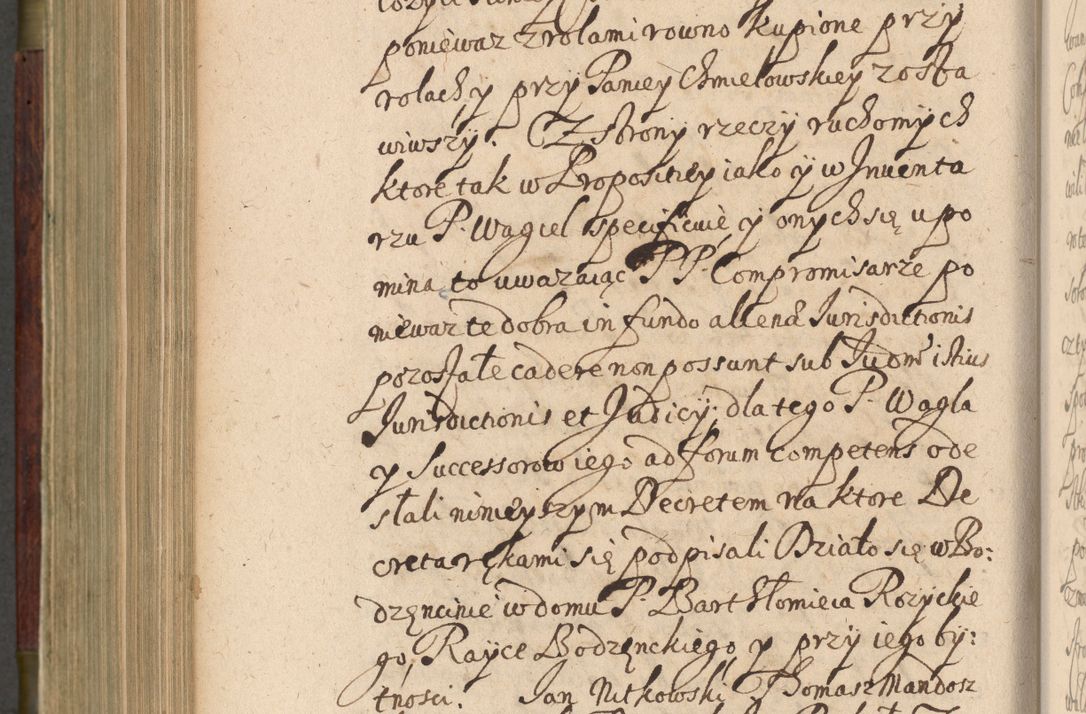 poniewaz z rolami rowno kupione przÿ
rolach y przÿ Paniey Chmielowskieÿ zosta
wiwszÿ. Z Stronÿ rzeczÿ ruchomÿch
ktore tak w Propositieÿ iako ÿ w Inwenta
rzu P. Wagiel specificuie ÿ onÿch się upo
mina to uwazaiąc PP. Compromisarze po
niewaz te dobra in fundo alienæ Iurisdictionis
pozostałe cadere non possunt sub Iudm istius
Iurisdictionis et Judicÿ; dla tego P. Wagla
y Successorow iego ad forum competens ode
słali ninieÿszym Decretem na ktore De
creta rękami się podpisali Działo się w Bo:
dzęncinie w domu P. Barthłomieia Rozyckie
go, Raÿce Bodzęnckiego, y przÿ iego bÿ:
tności. Jan Nitkowski, Thomasz Mandosz